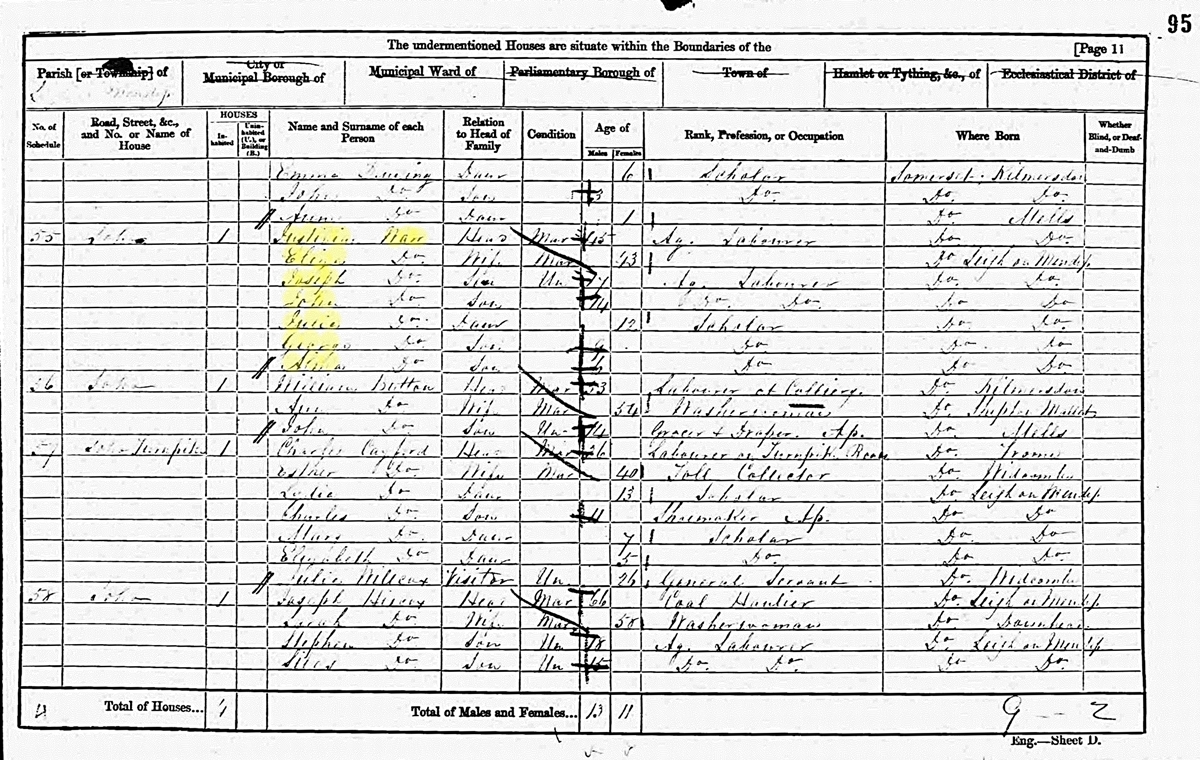 95
The undermentioned Houses are situate within the Boundaries of the [Page 11
Parish [or Township] of City or Municipal Borough of Municipal Ward of Parliamentary Borough of Town of Hamlet or Tything, &c., of Ecclesiastical District of
Mendip
No. of Schedule Road, Street, &c., and No. or Name of House HOUSES Inhabited Uninhabited (U.), or Building (B.) Name and Surname of each Person Relation to Head of Family Condition Age of Males Females Rank, Profession, or Occupation Where Born Whether Blind, or Deaf-and-Dumb
Emma Daur 6 Scholar Somerset Kilmersdon
John Do Son 3 Do Do Do
Ann Do Daur 1 Do Mells
55 Soho 1 Head Mar 45 Ag. Labourer Do Do
Eliza Do Wife Mar 43 Do Leigh on Mendip
Joseph Do Son Un 17 Ag. Labourer Do Do
John Do Son 14 Do Do Do Do
Julia Do Daur 12 Scholar Do Do
George Do Son 9 Do Do Do
Do Son Do Do Do
56 Soho 1 William Button Head Mar 53 Labourer at Colliery Do Kilmersdon
Ann Do Wife Mar 54 Washerwoman Do Shepton Mallet
John Do Son Un 14 Grocer & Draper Ap. Do Mells
57 Soho Turnpike 1 Charles Head Mar 36 Labourer on Turnpike Road Do Frome
Esther Do Wife Mar 40 Toll Collector Do Widcombe
Lydia Do Daur 13 Scholar Do Leigh on Mendip
Charles Do Son 11 Shoemaker Ap. Do Do
Mary Do Daur 7 Scholar Do Do
Elizabeth Do Daur 5 Do Do Do
Julia Wilcox Visitor Un 26 General Servant Do Widcombe
58 Soho 1 Joseph Hiscox Head Mar 66 Coal Haulier Do Leigh on Mendip
Sarah Do Wife Mar 58 Washerwoman Do
Stephen Do Son Un 18 Ag. Labourer Do Leigh on Mendip
Silas Do Son Un 15 Do Do Do Do
4 Total of Houses... 4 Total of Males and Females... 13 11 9 - 2
Eng.—Sheet D.